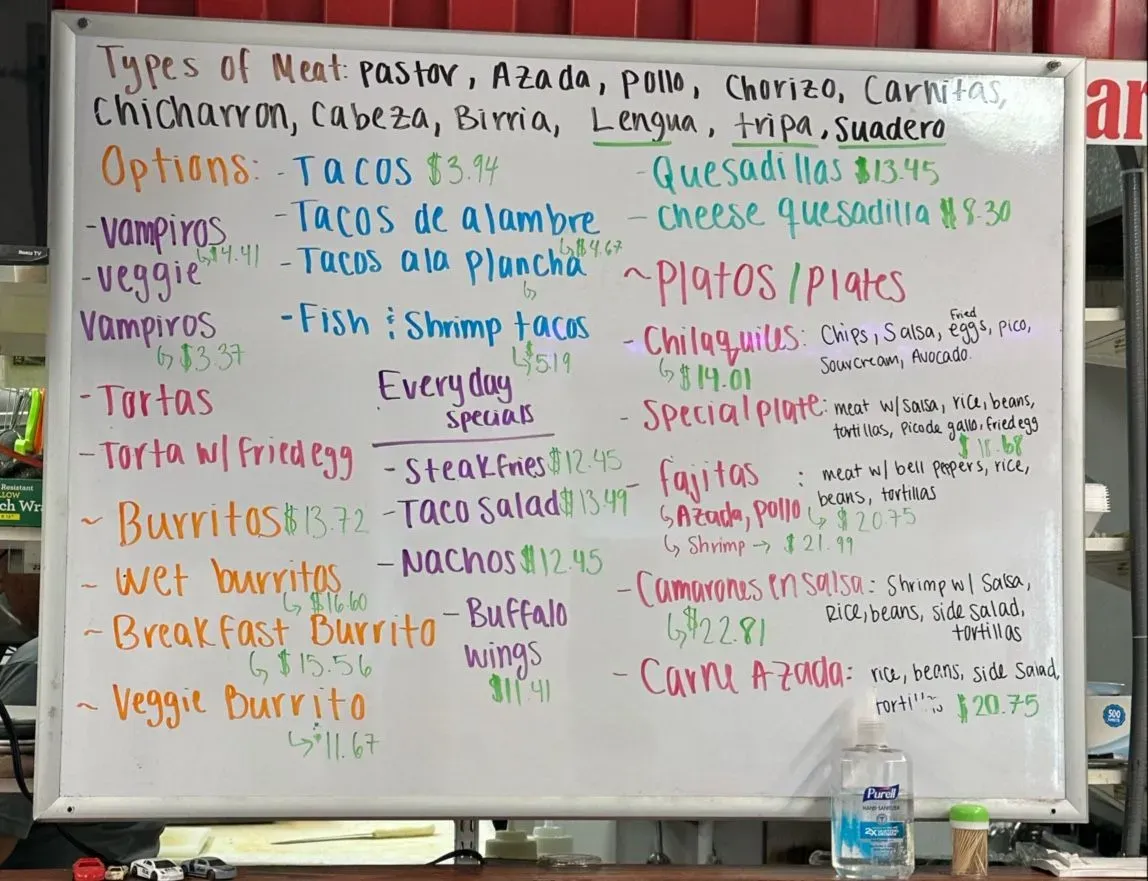 Types of Meat: pastor, Azada, pollo, Chorizo, Carnitas,
Chicharron, Cabeza, Birria, Lengua, tripa, suadero
Options:
- Tacos $3.94
- Tacos de alambre
↳ $4.67
- Tacos ala plancha
↳
- Fish & Shrimp tacos
↳ $5.19
- Vampiros
↳ $4.41
- Veggie
Vampiros
↳ $3.37
- Tortas
- Torta w/ Fried egg
~ Burritos $13.72
~ Wet burritos
↳ $16.60
~ Breakfast Burrito
↳ $15.56
~ Veggie Burrito
↳ $11.67
Everyday
specials
- Steak fries $12.45
- Taco Salad $13.49
- Nachos $12.45
- Buffalo
wings
$11.41
- Quesadillas $13.45
- cheese quesadilla $8.30
~ Platos / Plates
- Chilaquiles: Chips, Salsa, Fried eggs, pico,
Sourcream, Avocado.
↳ $14.01
- Special plate: meat w/ salsa, rice, beans,
tortillas, Pico de gallo, fried egg
$18.68
- Fajitas : meat w/ bell peppers, rice,
beans, tortillas
↳ Azada, pollo ↳ $20.75
↳ Shrimp → $21.99
- Camarones en salsa: Shrimp w/ Salsa,
Rice, beans, side salad,
tortillas
↳ $22.81
- Carne Azada: rice, beans, side salad,
$20.75
Purell
HAND SANITIZER
2X
500
Resistant
LOW
ch Wr
Roku TV
ar